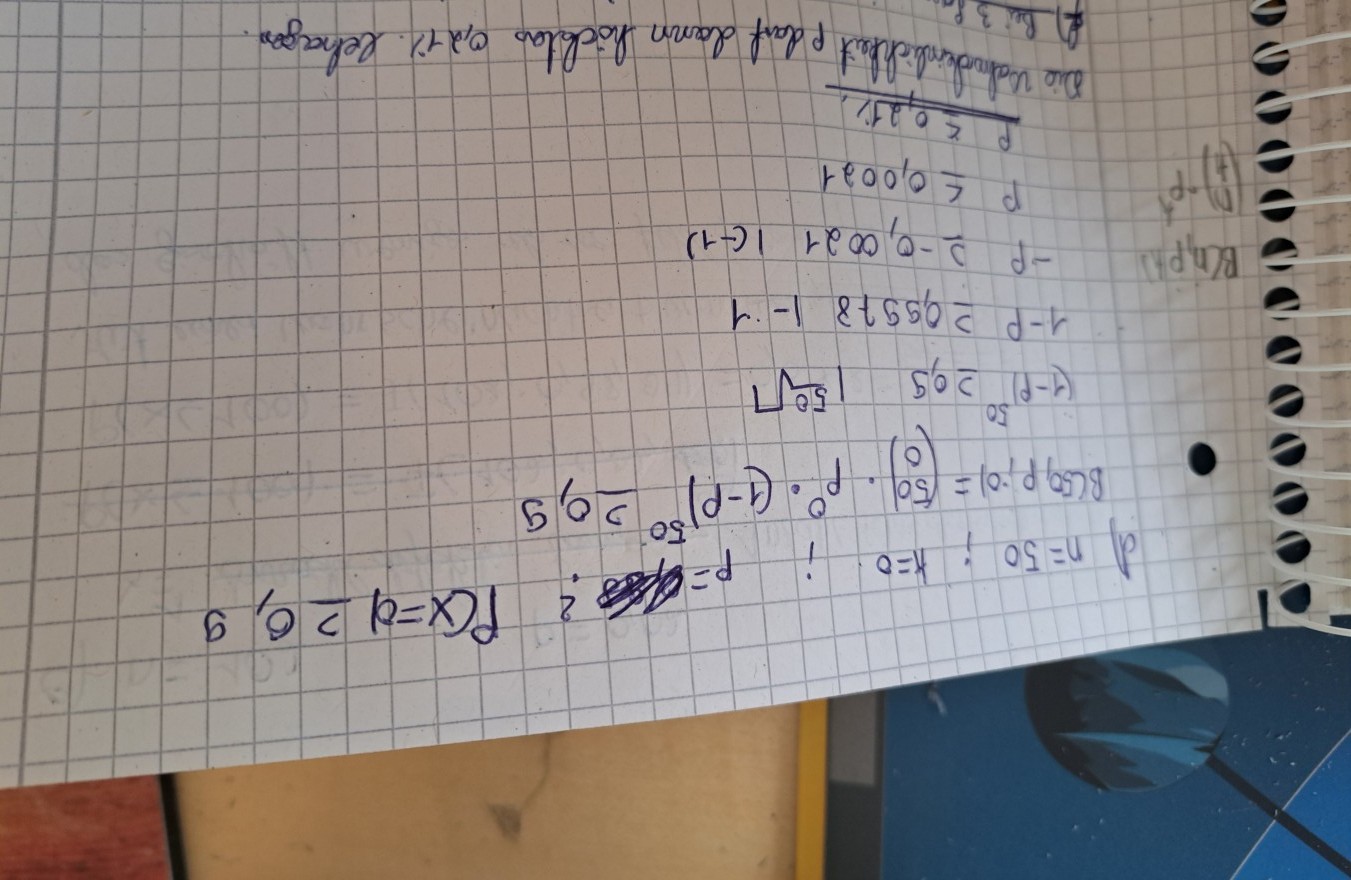 d) n=50 ; k=0 ; p= ? P(X=0) ≥ 0,9
B(50, p, 0) = (50 0) · p⁰ · (1-p)⁵⁰ ≥ 0,9
(1-p)⁵⁰ ≥ 0,9 | ⁵⁰√
1-p ≥ 0,9979 | -1
-p ≥ -0,0021 | (-1)
B(n, p, k)
p ≤ 0,0021
(n k) · pᵏ
p ≤ 0,21%
Die Wahrscheinlichkeit p darf dann höchstens 0,21% betragen.
Bei 3